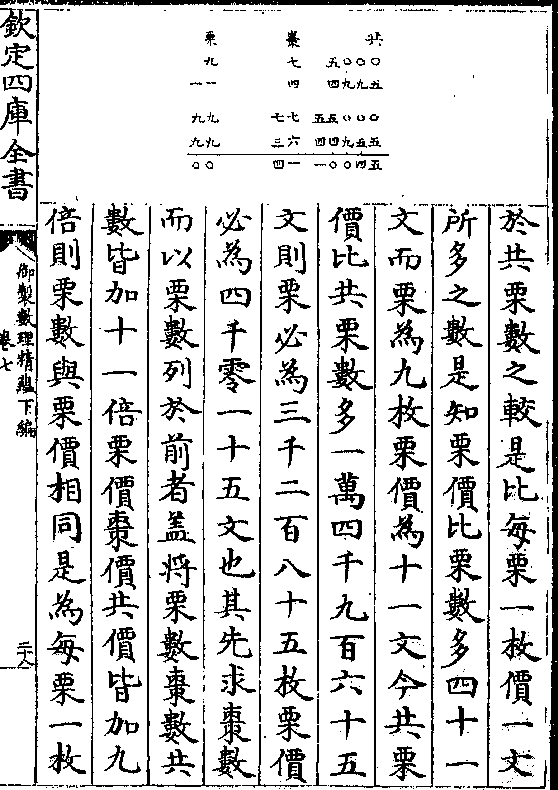 栗 棗 共
九 七 五〇〇〇
一一 四 四九九五
九九 七七 五五〇〇〇
九九 三六 四四九五五
〇〇 四一 一〇〇四五
於共栗數之較是比每栗一枚價一文
所多之數是知栗價比栗數多四十一
文而栗為九枚栗價為十一文今共栗
價比共栗數多一萬四千九百六十五
文則栗必為三千二百八十五枚栗價
必為四千零一十五文也其先求棗數
而以栗數列於前者蓋將栗數棗數共
數皆加十一倍栗價棗價共價皆加九
倍則栗數與栗價相同是為每栗一枚
欽定四庫全書
御製數理精蘊下編
卷七
二十八